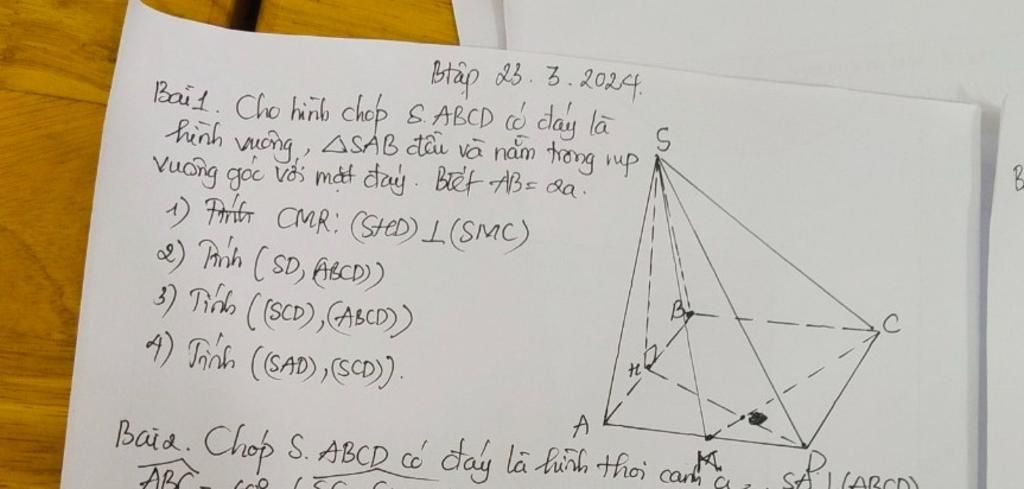 Btập 23.3.2024.
Bài 1. Cho hình chóp S.ABCD có đáy là
hình vuông, △SAB đều và nằm trong mp
vuông góc với mặt đáy. Biết AB = 2a.
1) CMR: (SHD) ⊥ (SMC)
2) Tính (SD, (ABCD))
3) Tính ((SCD), (ABCD))
4) Tính ((SAD), (SCD)).
S
B
C
H
A
M
D
Bài 2. Chóp S.ABCD có đáy là hình thoi cạnh a, SA ⊥ (ABCD)
ABC =
B